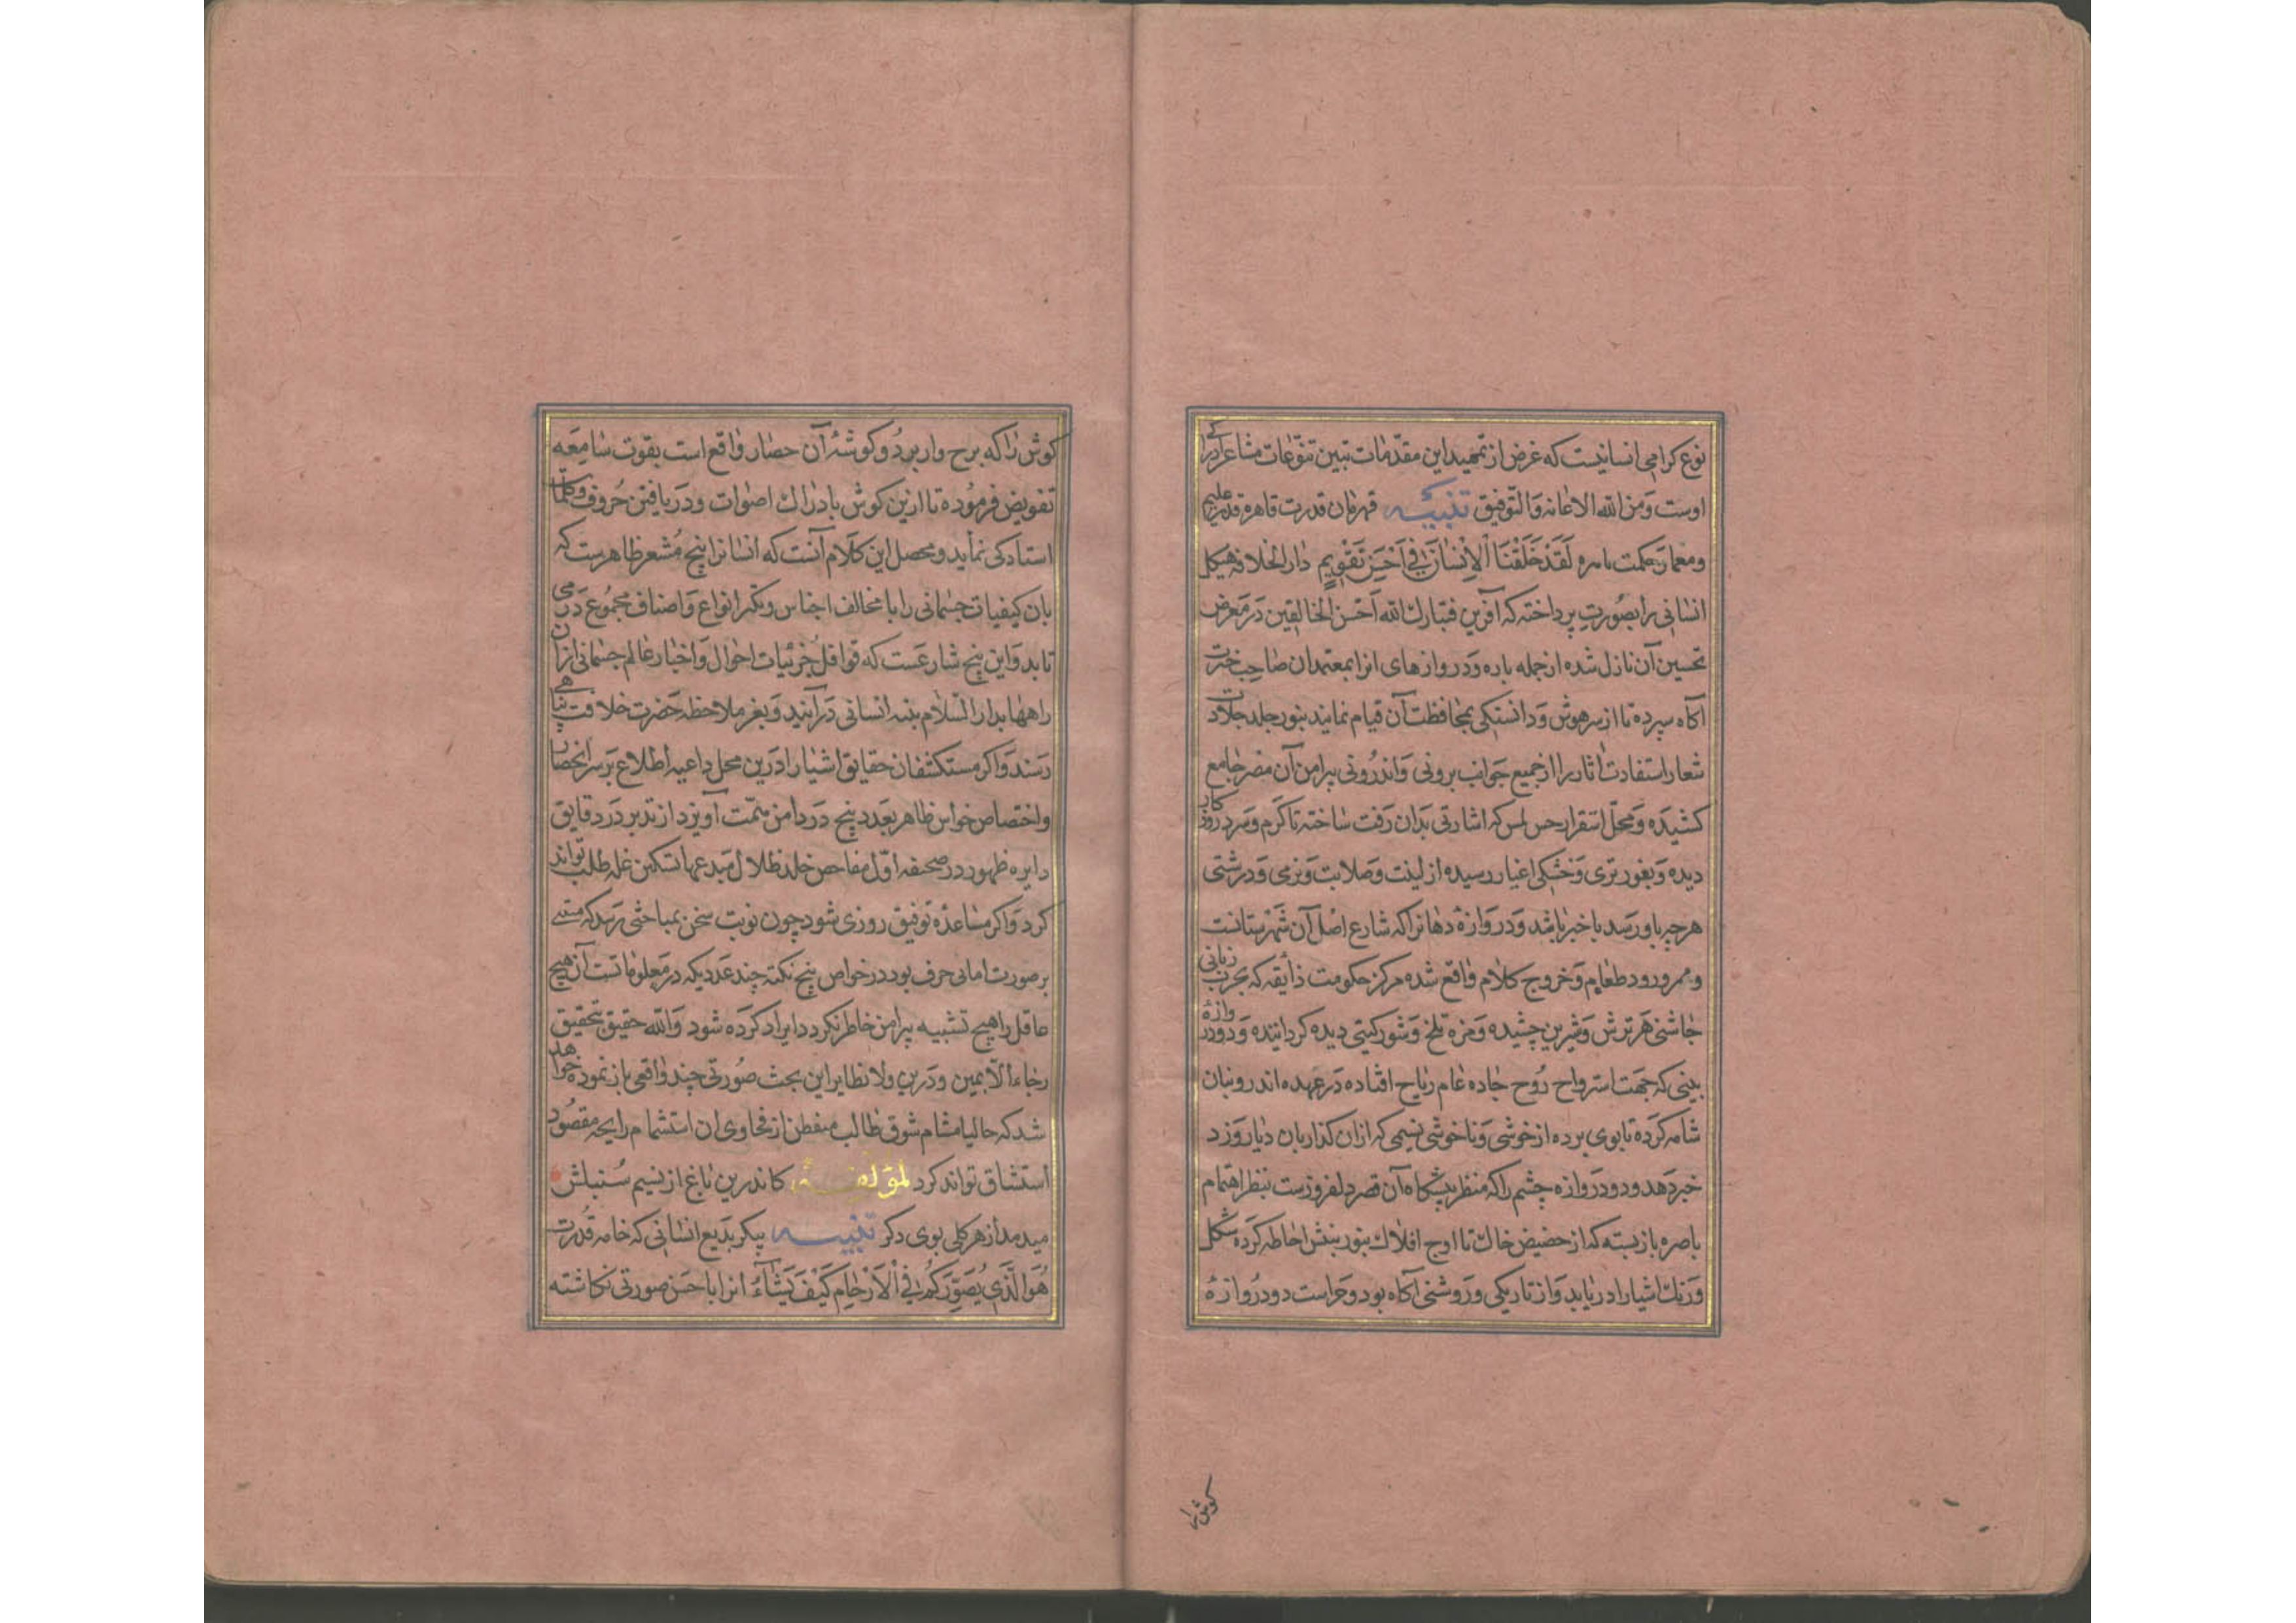 نوع کرامی انسانیست که غرض از تمهید این مقدمات تبین تنوعات مشاعر ادراکی
اوست وَمن الله الاعانه وَالتوفیق تنبیه قهرمان قدرت قاهره قدیر علیم
ومعمار حکمت باهره لَقَدْ خَلَقْنَا اْلاِنْسٰانَ فِی اَحْسَنِ تَقْوِیمٍ دار الخلافه هیکل
انسانی را بصُورت پرداخته که آفرین فتبارك الله اَحْسن الخالقین دَر مَعرض
تحسین آن نازل شده از جمله باره وَدروازهای انرا بمعتمدان صاحب خبرت
آکاه سپرده تا از سر هوش وَدانستکی بمحافظت آن قیام نمایند بنور جلد جلادت
شعار استفادت اثار را از جمیع جَوانب برونی وَاندرُونی پیرامن آن مصر جامع
کشیدَه وَمحل استقرار حس لمس که اشارتی بدان رَفت سٰاخته تا کرم وَسرد روزکار
دیده وَبغور تری وَخشکی اغیار رسیده از لینت وَصلابت وَنرمی وَدرشتی
هرچه باو رسد با خبر باشد وَدروَازهٔ دهانرا که شارع اصل آن شهرستانست
وممر ورود طعام وَخروج کلام وٰاقع شده مرکز حکومت ذایقه که بچرب زبانی
چاشنی هر ترش وَشیرین چشیده وَمزه تلخ وَشور کیتی دیده کردانیده وَدو دروازهٔ
بینی که جهَت استرواح رُوح جاده عٰام ریاح افتاده دَر عهده اندرونیان
شامه کرَده تا بوی برده از خوشی وَناخوشی نسیمی که ازان کذار بان دیار وَزد
خبر دهد ودو درَوازه چشم را که منظر پیشکاه آن قصر دلفروزست بنظر اهتمام
باصره باز بسته که از حضیض خاك تا اوج افلاك بنور بینش احٰاطه کرده شکل
وَرنك اشیا را دریٰابد وَاز تاریکی وَروشنی آکاه بود وحراست دو درُوازهٔ
کوش را
کوش رٰا که برح وار بر دُو کوشهٔ آن حصار وٰاقع است بقوت سٰامِعَه
تفویض فرمُوده تا ازین کوش بادراك اصوٰات ودَریافتن حُروف وکلمات
استادکی نماید ومحصل این کلَام آنست که انسانرا پنج مُشعر ظاهرست که
بان کیفیات جسمانی را با تخالف اجناس وتکثر انواع وَاصناف مجمُوع دَر می
یابد وَاین پنج شارعَست که قوافل جُزئیات احوال وَاخبار عٰالم جسمانی ازان
راهها بدار السلام بنیه انسانی دَر آیند وَبغر ملاحظه حَضرت خلافت پناهی
رَسند وَاکر مستکشفان حقایق اشیا را دَرین محل داعیه اطلاع بَر سر انحصار
واختصاص حواس ظاهر بعَدد پنج دَر دامن همّت آویزد از تدبر دَر دقایق
دایره ظهور در صحیفه اوّل مفاحص خلد ظلال مبدعها تسکین غله طلب تواند
کرد وَاکر مسٰاعدهٔ توفیق روزی شود چون نوبت سخن بمباحثی رسد که مبتنی
بر صورت امانی حرف بود در خواص پنج نکته چند عَدد یکه در مَعلومٰاتست آن هیچ
عاقل را هیچ تشبیه پیرامن خاطر نکردد ایراد کرَده شود وَالله حقیق بتحقیق
رجاء الآملین ودَرین ولا نظایر این بحث صُورتی چند وٰاقعی باز نموده خواهد
شد که حالیا مشام شوق طٰالب متفطن از فحاوی ان استشمام رایحه مقصُود
استنشاق تواند کرد لمؤلفه کاندرین بٰاغ از نسیم سُنبلش
میدمد از هر کلی بوی دکر تنبیه پیکر بَدیع انسٰانی که خامه قدُرت
هُوَ الَّذِی یُصَوِّرَکُمْ فِی اْلاَرْحٰامِ کَیْفَ یَشٰآءُ انرا با حَسن صورتی نکاشته